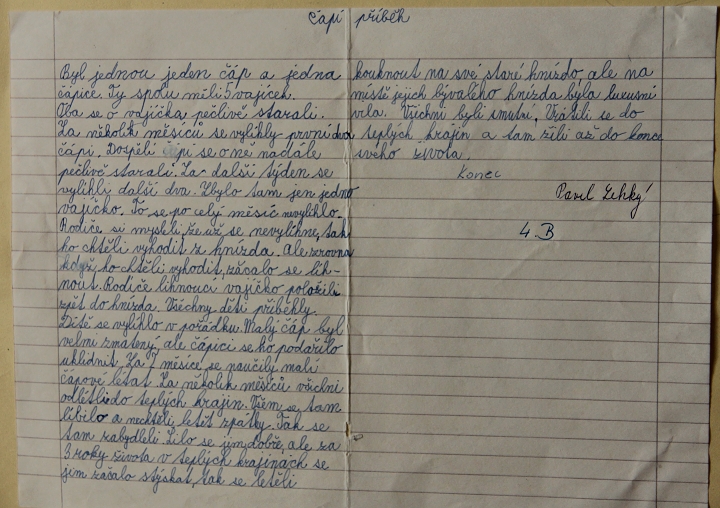 Čapí příběh
Byl jednou jeden čáp a jedna
čápice. Ty spolu měli 5 vajíček.
Oba se o vajíčka pečlivě starali.
Za několik měsíců se vylíhly první dva
čápi. Dospělí čápi se o ně nadále
pečlivě starali. Za další týden se
vylíhly další dva. Zbylo tam jen jedno
vajíčko. To se po celý měsíc nevylíhlo.
Rodiče si mysleli, že už se nevylíhne, tak
ho chtěli vyhodit z hnízda. Ale zrovna
když ho chtěli vyhodit, začalo se líh-
nout. Rodiče líhnoucí vajíčko položili
zpět do hnízda. Všechny děti přiběhly.
Dítě se vylíhlo v pořádku. Malý čáp byl
velmi zmatený, ale čápici se ho podařilo
uklidnit. Za 7 měsíce se naučily malí
čápové létat. Za několik měsíců všichni
odlétli do teplých krajin. Všem se tam
líbilo a nechtěli letět zpátky. Tak se
tam zabydleli. Žilo se jim dobře, ale za
3 roky života v teplých krajinách se
jim začalo stýskat, tak se letěli
kouknout na své staré hnízdo, ale na
místě jejich bývalého hnízda byla luxusní
vila. Všichni byli smutní. Vrátili se do
teplých krajin a tam žili až do konce
svého života.
Konec
Pavel Lehký
4.B